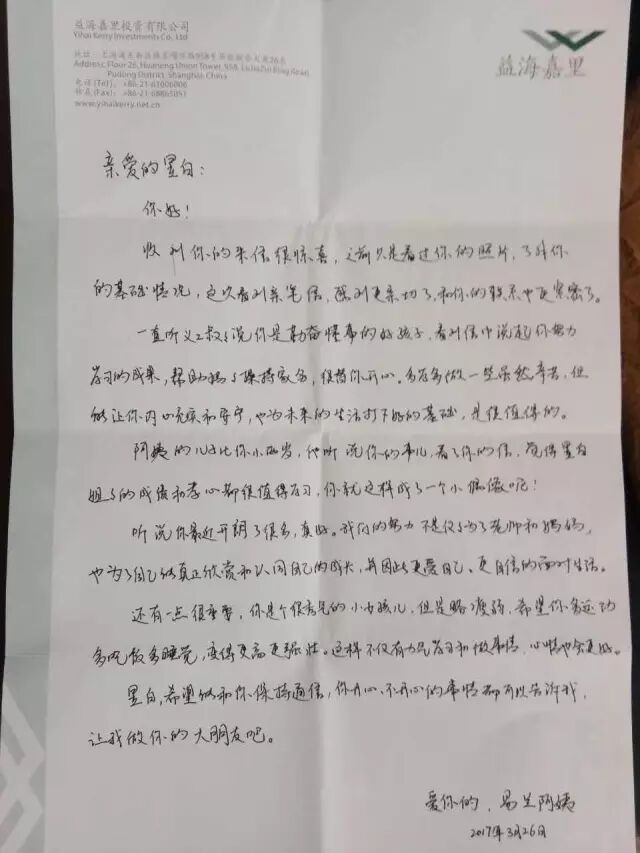 益海嘉里投资有限公司
Yihai Kerry Investments Co., Ltd
地址：上海浦东新区陆家嘴环路958号华能联合大厦26楼
Address: Floor 26, Huaneng Union Tower, 958, LuJiaZui Ring Road,
Pudong District, Shanghai, China
电话(Tel): +86-21-61006006
传真(Fax): +86-21-68865051
www.yihaikerry.net.cn
益海嘉里
亲爱的昱白：
你好！
收到你的来信很惊喜，之前只是看过你的照片，了解你
的基础情况，这次看到亲笔信，感到更亲切了，和你的联系也更紧密了。
一直听义工叔叔说你是勤奋懂事的好孩子，看到信中说起你努力
学习的成果，帮助妈妈操持家务，很替你开心。多学多做一些虽然辛苦，但
能让你内心充实和安宁，也为未来的生活打下好的基础，是很值得的。
阿姨的儿子比你小两岁，他听说你的事儿，看了你的信，觉得昱白
姐姐的成绩和孝心都很值得学习，你就这样成了一个小偶像呢！
听说你最近开朗了很多，真好。我们的努力不是仅为了老师和妈妈，
也为了自己能真正欣赏和认同自己的成长，并因此更爱自己、更自信的面对生活。
还有一点很重要，你是个很秀气的小女孩儿，但是略瘦弱，希望你多运动
多吃饭多睡觉，变得更高更强壮。这样不仅有力气学习和做事情，心情也会更好。
昱白，希望能和你保持通信，你开心、不开心的事情都可以告诉我，
让我做你的大朋友吧。
爱你的，易兰阿姨
2017年3月26日